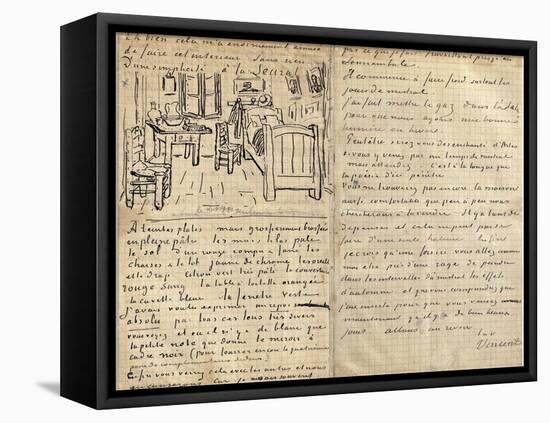 Eh bien cela m'a énormément amusé
de faire cet intérieur sans rien
D'une simplicité à la Seurat
A teintes plates mais grossièrement brossées
en pleine pâte les murs lilas pâle
le sol d'un rouge rompu & fané les
chaises & le lit jaune de chrome les oreillers
et le drap citron vert très pâle la couverture
rouge sang la table à toilette orangée
la cuvette bleue la fenêtre verte
J'avais voulu exprimer un repos
absolu par tous ces tons très divers
vous voyez et où il n'y a de blanc que
la petite note que donne le miroir à
cadre noir (pour fourrer encore la quatrième
paire de complémentaires dedans)
Enfin vous verrez cela avec les autres et nous
en causerons car je ne sais souvent
pas ce que je fais travaillant presqu'en
somnambule.
Il commence à faire froid surtout les
jours de mistral
J'ai fait mettre le gaz dans l'atelier
pour que nous ayons une bonne
lumière en hiver.
Peut être serez vous désenchanté d'Arles
si vous y venez par un temps de mistral
mais attendez... C'est à la longue que
la poésie d'ici pénètre
Vous ne trouverez pas encore la maison
aussi confortable que peu à peu nous
chercherons à la rendre Il y a tant de
dépenses et cela ne peut pas se
faire d'une seule haleine. Enfin
je crois qu'une fois ici vous allez comme
moi être pris d'une rage de peindre
dans les intervalles du mistral les effets
d'automne et que vous comprendrez que
j'aie insisté pour que vous veniez
maintenant qu'il y a de bien beaux
jours allons au revoir
t à v
Vincent